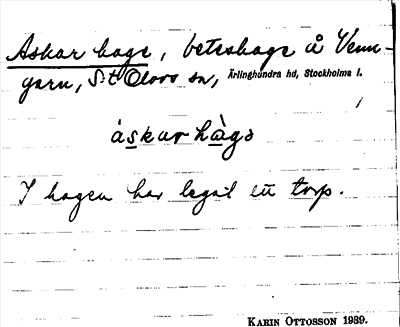 Askar hage, beteshage å Venn-
garn, S:t Olovs sn, Ärlinghundra hd, Stockholms l.
áskar hàgə
I hagen har legat ett torp.
KARIN OTTOSSON 1939.